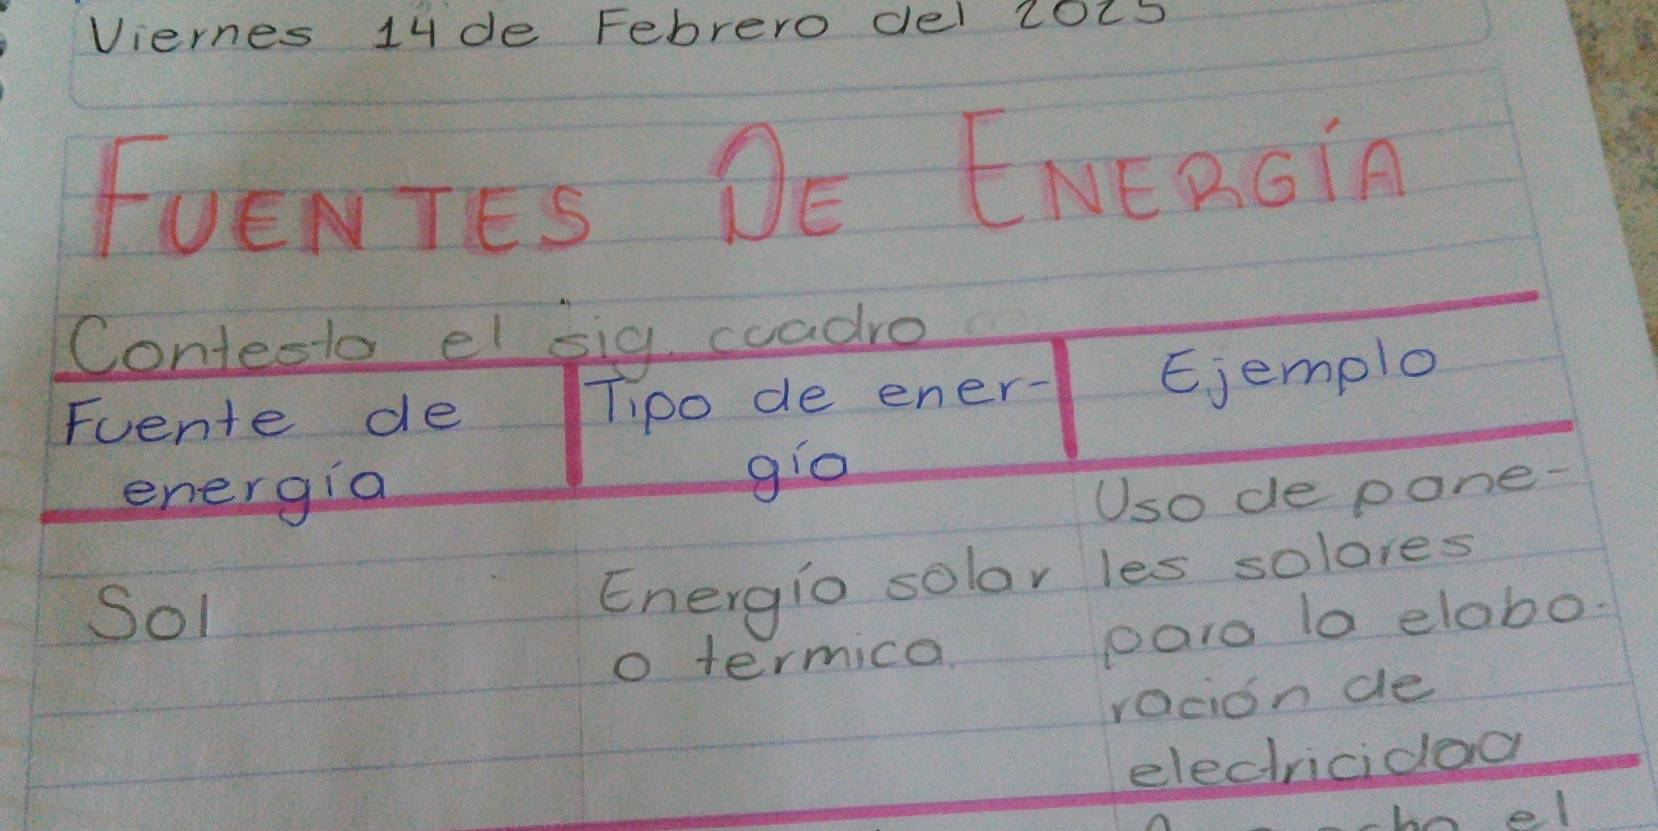 Viernes 14 de Febrero del 2025
FUENTES DE ENERGÍA
Contesta el sig. cuadro
Fuente de energía
Tipo de ener-
gía
Ejemplo
Sol
Energía solar
o termica.
Uso de pane-
les solares
para la elabo-
ración de
electricidad
el